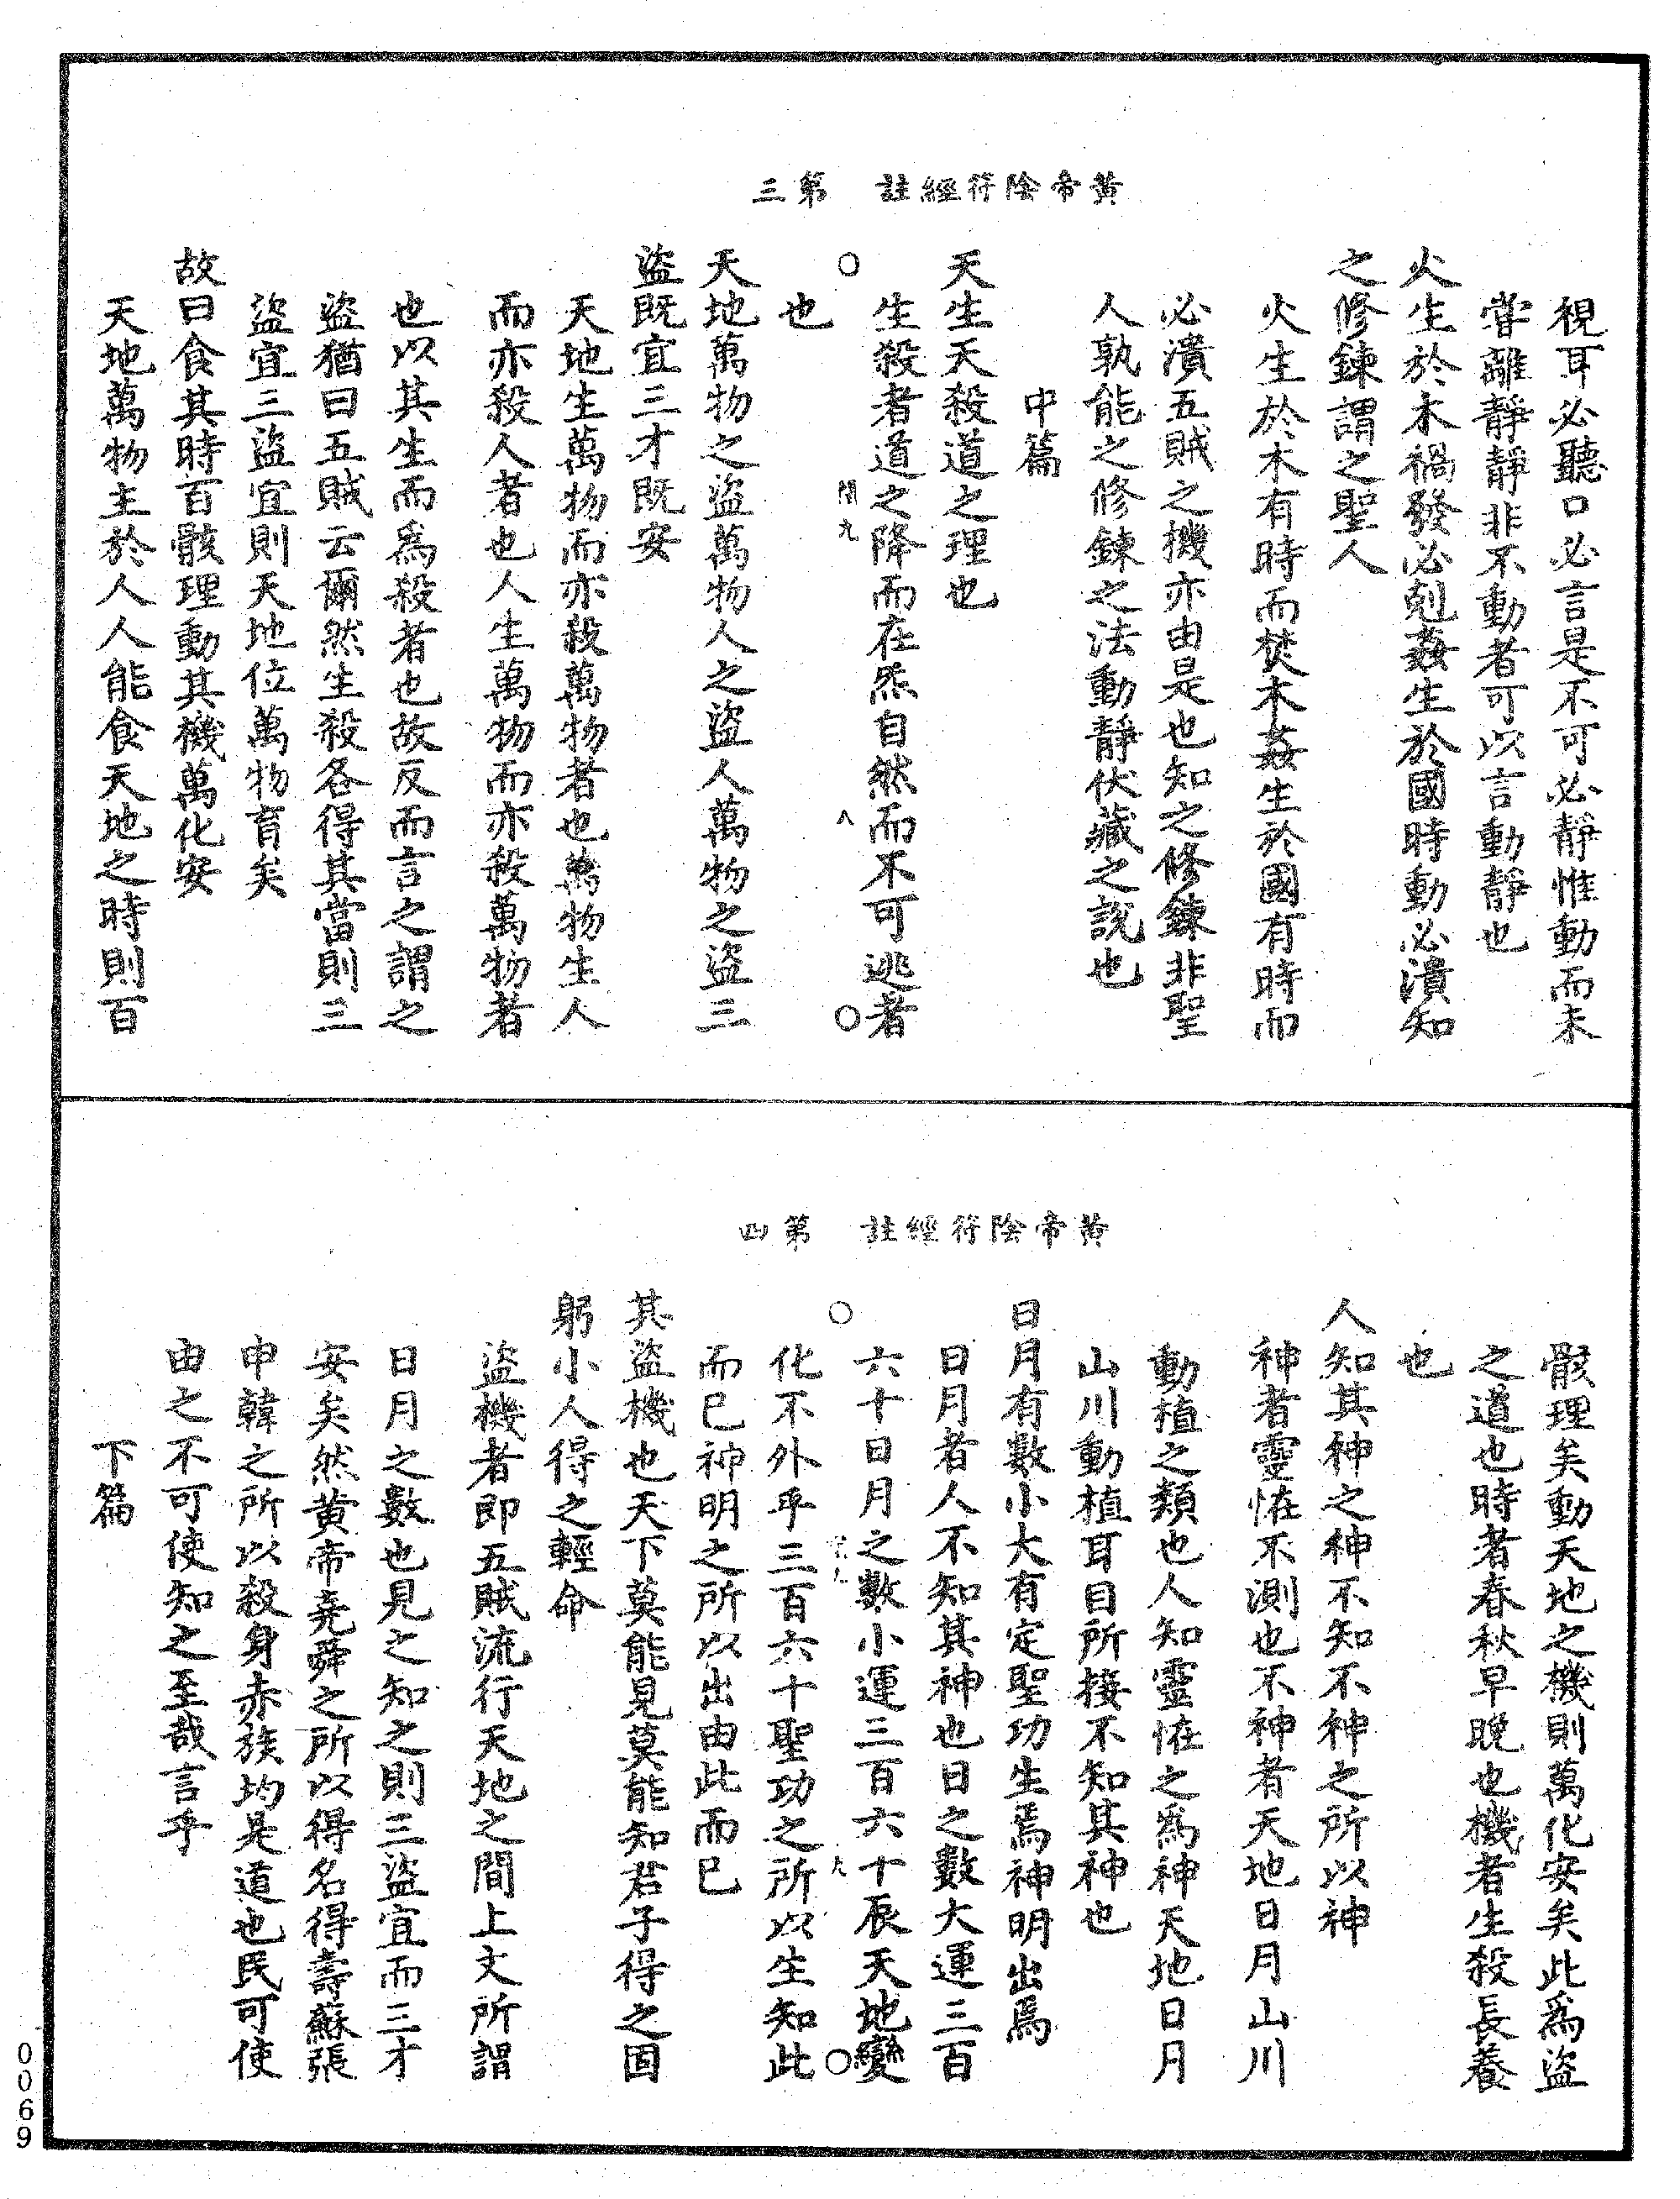 黃帝陰符經註　第三
視耳必聽口必言是不可必靜惟動而未
嘗離靜靜非不動者可以言動靜也
火生於木禍發必剋姦生於國時動必潰知
之修鍊謂之聖人
火生於木有時而焚木姦生於國有時而
必潰五賊之機亦由是也知之修鍊非聖
人孰能之修鍊之法動靜伏藏之說也
中篇
天生天殺道之理也
生殺者道之降而在炁自然而不可逃者
閏九　八
也
天地萬物之盜萬物人之盜人萬物之盜三
盜既宜三才既安
天地生萬物而亦殺萬物者也萬物生人
而亦殺人者也人生萬物而亦殺萬物者
也以其生而為殺者也故反而言之謂之
盜猶曰五賊云爾然生殺各得其當則三
盜宜三盜宜則天地位萬物育矣
故曰食其時百骸理動其機萬化安
天地萬物主於人人能食天地之時則百
黃帝陰符經註　第四
骸理矣動天地之機則萬化安矣此為盜
之道也時者春秋早晚也機者生殺長養
也
人知其神之神不知不神之所以神
神者靈恠不測也不神者天地日月山川
動植之類也人知靈恠之為神天地日月
山川動植耳目所接不知其神也
日月有數小大有定聖功生焉神明出焉
日月者人不知其神也日之數大運三百
六十日月之數小運三百六十辰天地變
九
化不外乎三百六十聖功之所以生知此
而已神明之所以出由此而已
其盜機也天下莫能見莫能知君子得之固
躬小人得之輕命
盜機者即五賊流行天地之間上文所謂
日月之數也見之知之則三盜宜而三才
安矣然黃帝堯舜之所以得名得壽蘇張
申韓之所以殺身赤族均是道也民可使
由之不可使知之至哉言乎
下篇
0069